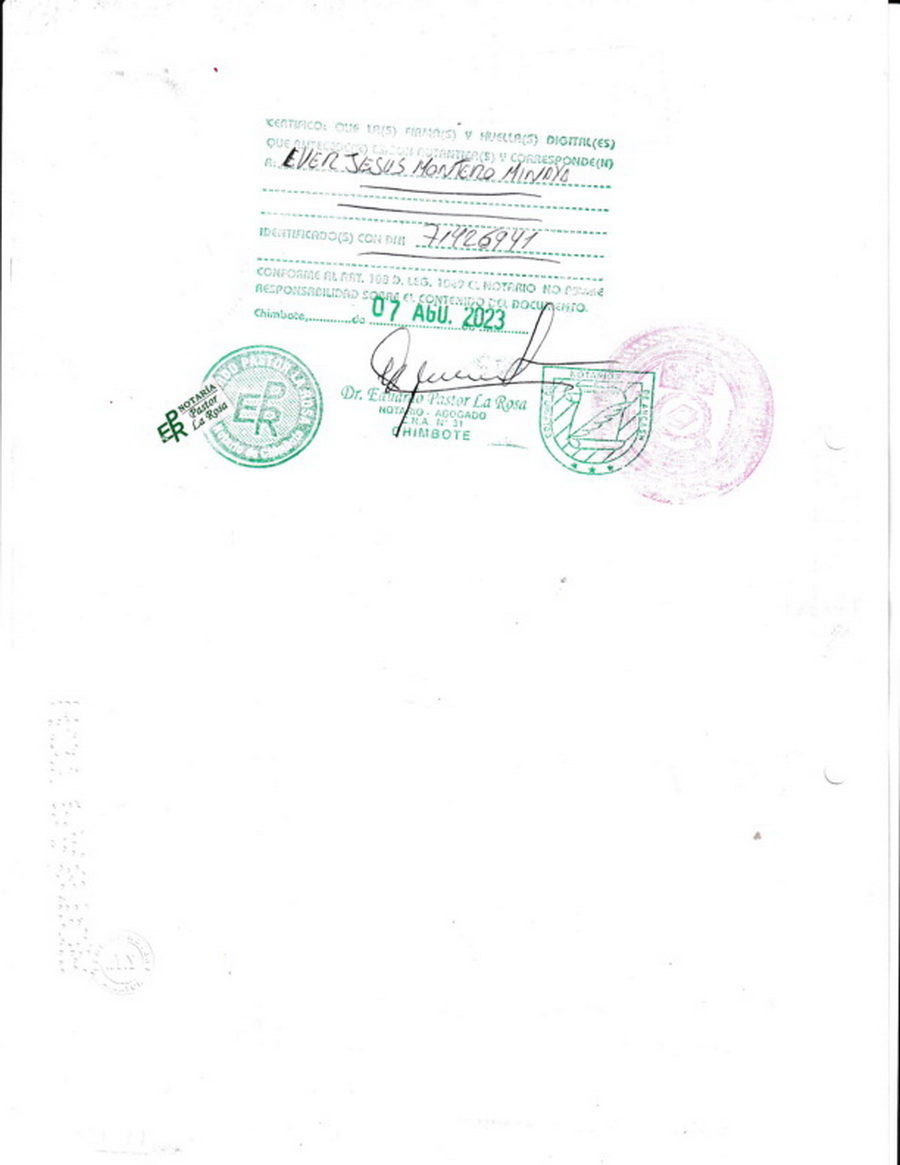 CERTIFICO: QUE LA(S) FIRMA(S) Y HUELLA(S) DIGITAL(ES)
QUE ANTECEDE(N) ES(SON) AUTANTICA(S) Y CORRESPONDE(N)
A: EVER JESUS MONTERO MINAYA
IDENTIFICADO(S) CON DNI 71426941
CONFORME AL ART. 108 D. LEG. 1049 C. NOTARIO NO ASUME
RESPONSABILIDAD SOBRE EL CONTENIDO DEL DOCUMENTO.
Chimbote,............de
07 AGU. 2023
NOTARIA
Pastor
La Rosa
EPR
EPR
Dr. Eduardo Pastor La Rosa
NOTARIO - ABOGADO
C.N.A. N° 31
CHIMBOTE
NOTARIOS